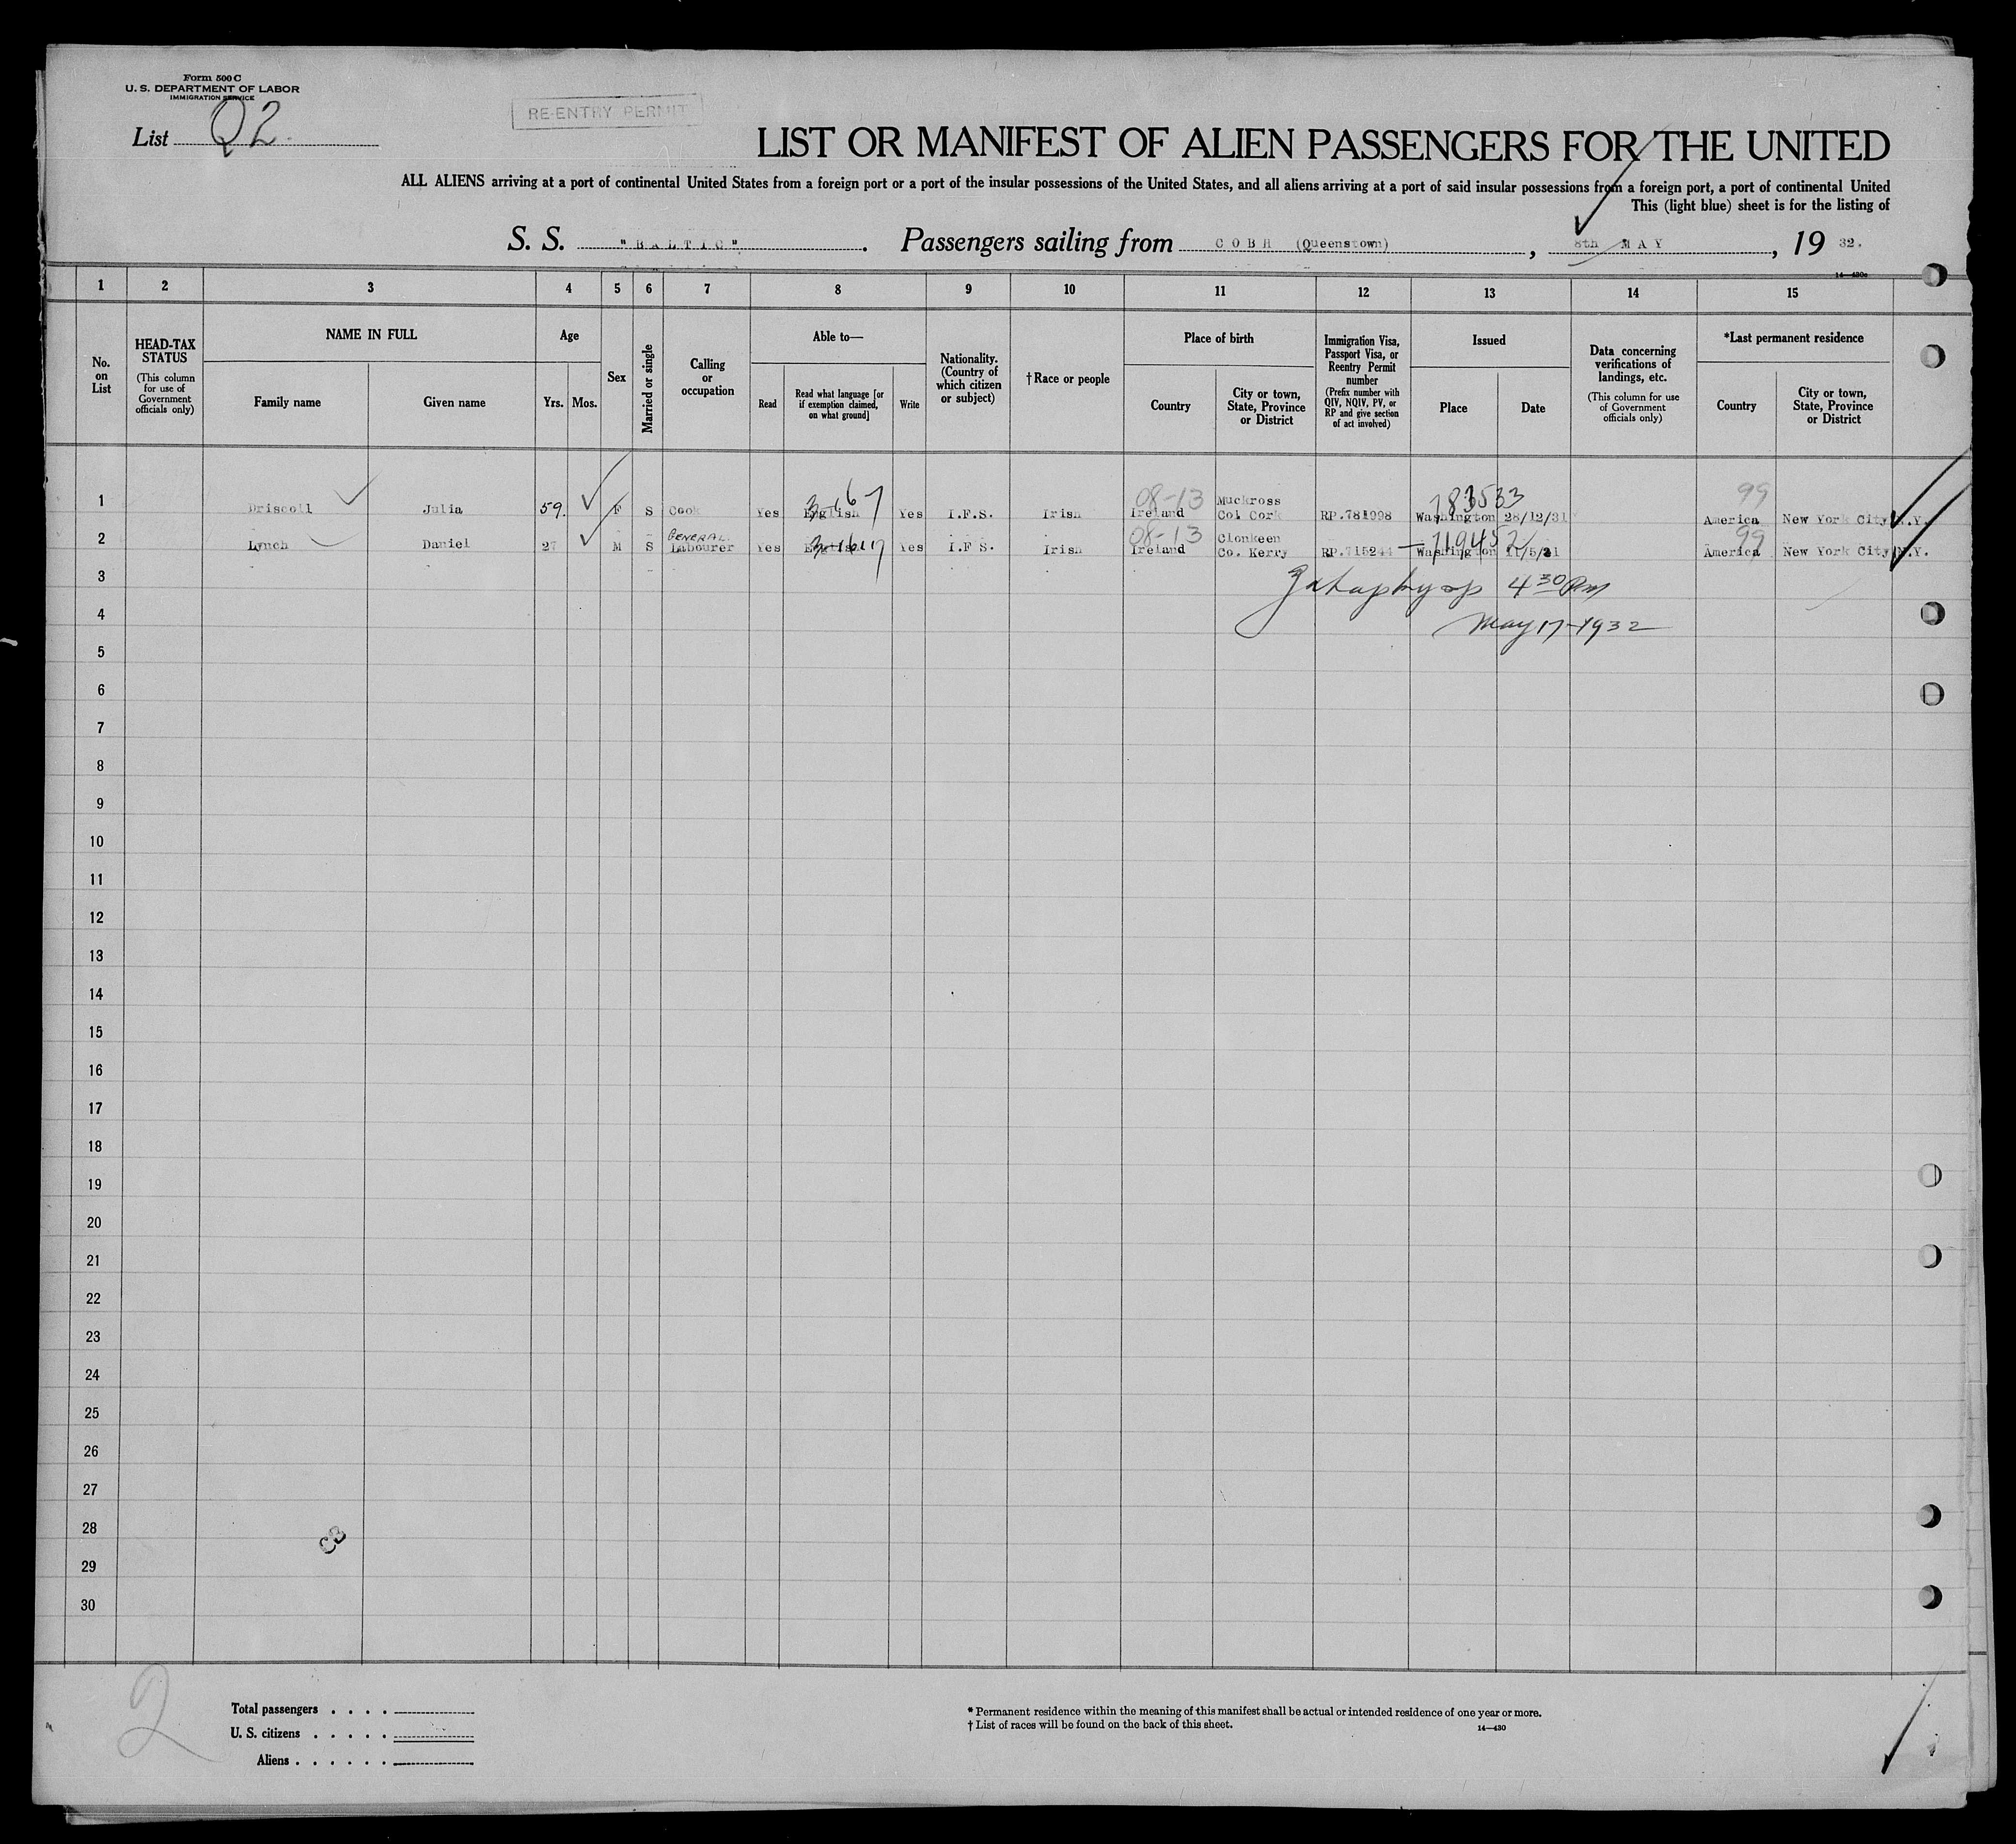 Form 500 C
U. S. DEPARTMENT OF LABOR
IMMIGRATION SERVICE
List Q2.
RE-ENTRY PERMIT
LIST OR MANIFEST OF ALIEN PASSENGERS FOR THE UNITED
ALL ALIENS arriving at a port of continental United States from a foreign port or a port of the insular possessions of the United States, and all aliens arriving at a port of said insular possessions from a foreign port, a port of continental United
This (light blue) sheet is for the listing of
S. S. "BALTIC". Passengers sailing from COBH (Queenstown), 8th MAY, 19 32.
14—430c
1 2 3 4 5 6 7 8 9 10 11 12 13 14 15
No. on List
HEAD-TAX STATUS
(This column for use of Government officials only)
NAME IN FULL
Family name
Given name
Age
Yrs.
Mos.
Sex
Married or single
Calling or occupation
Able to—
Read
Read what language [or if exemption claimed, on what ground]
Write
Nationality. (Country of which citizen or subject)
†Race or people
Place of birth
Country
City or town, State, Province or District
Immigration Visa, Passport Visa, or Reentry Permit number
(Prefix number with QIV, NQIV, PV, or RP and give section of act involved)
Issued
Place
Date
Data concerning verifications of landings, etc.
(This column for use of Government officials only)
*Last permanent residence
Country
City or town, State, Province or District
08-13 783533 99
1 Driscoll Julia 59. F S Cook Yes English Yes I.F.S. Irish Ireland Muckross Co. Cork RP.781998 Washington 28/12/31 America New York City N.Y.
08-13 719452 99
2 Lynch Daniel 27 M S GENERAL Labourer Yes English Yes I.F S. Irish Ireland Clonkeen Co. Kerry RP.715244 Washington 11/5/31 America New York City N.Y.
3 4 30 Pm
4 May 17-1932
5
6
7
8
9
10
11
12
13
14
15
16
17
18
19
20
21
22
23
24
25
26
27
28
29
30
2
Total passengers . . . .
U. S. citizens . . . . .
Aliens . . . . . .
* Permanent residence within the meaning of this manifest shall be actual or intended residence of one year or more.
† List of races will be found on the back of this sheet.
14—430